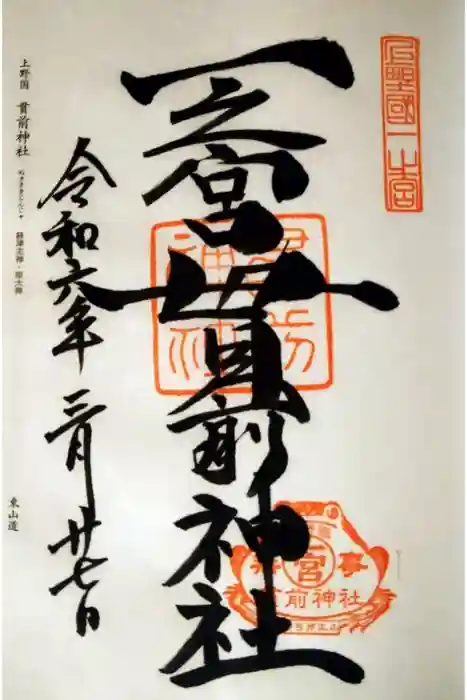 上野國一之宮
一之宮貫前神社
貫前神社
一宮
貫前神社
令和六年三月廿七日
上野国 貫前神社 ぬきさきじんじゃ 経津主神・姫大神
東山道